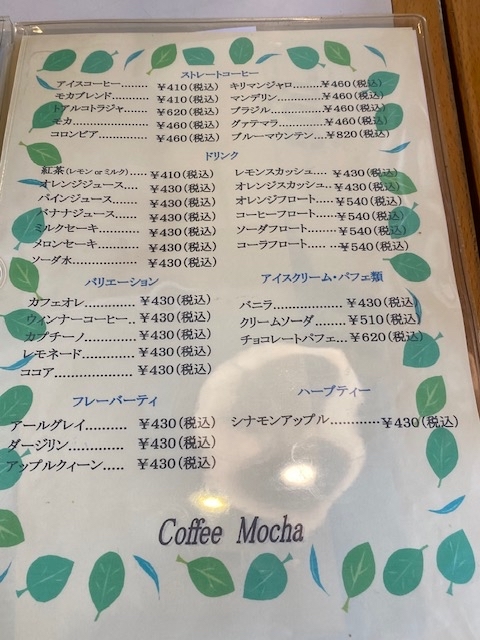 ストレートコーヒー
アイスコーヒー……… ￥410(税込)
モカブレンド……… ￥410(税込)
トアルコトラジャ…… ￥620(税込)
モカ……………… ￥460(税込)
コロンビア………… ￥460(税込)
キリマンジャロ……… ￥460(税込)
マンデリン………… ￥460(税込)
ブラジル…………… ￥460(税込)
グァテマラ………… ￥460(税込)
ブルーマウンテン… ￥820(税込)
ドリンク
紅茶(レモン or ミルク)…… ￥410(税込)
オレンジジュース…… ￥430(税込)
パインジュース…… ￥430(税込)
バナナジュース…… ￥430(税込)
ミルクセーキ……… ￥430(税込)
メロンセーキ……… ￥430(税込)
ソーダ水………… ￥430(税込)
レモンスカッシュ…… ￥430(税込)
オレンジスカッシュ… ￥430(税込)
オレンジフロート…… ￥540(税込)
コーヒーフロート…… ￥540(税込)
ソーダフロート……… ￥540(税込)
コーラフロート…… … ￥540(税込)
バリエーション
カフェオレ………… ￥430(税込)
ウィンナーコーヒー… ￥430(税込)
カプチーノ………… ￥430(税込)
レモネード………… ￥430(税込)
ココア…………… ￥430(税込)
アイスクリーム・パフェ類
バニラ…………… ￥430(税込)
クリームソーダ…… ￥510(税込)
チョコレートパフェ… ￥620(税込)
フレーバーティ
アールグレイ……… ￥430(税込)
ダージリン………… ￥430(税込)
アップルクィーン…… ￥430(税込)
ハーブティー
シナモンアップル……… ￥430(税込)
Coffee Mocha